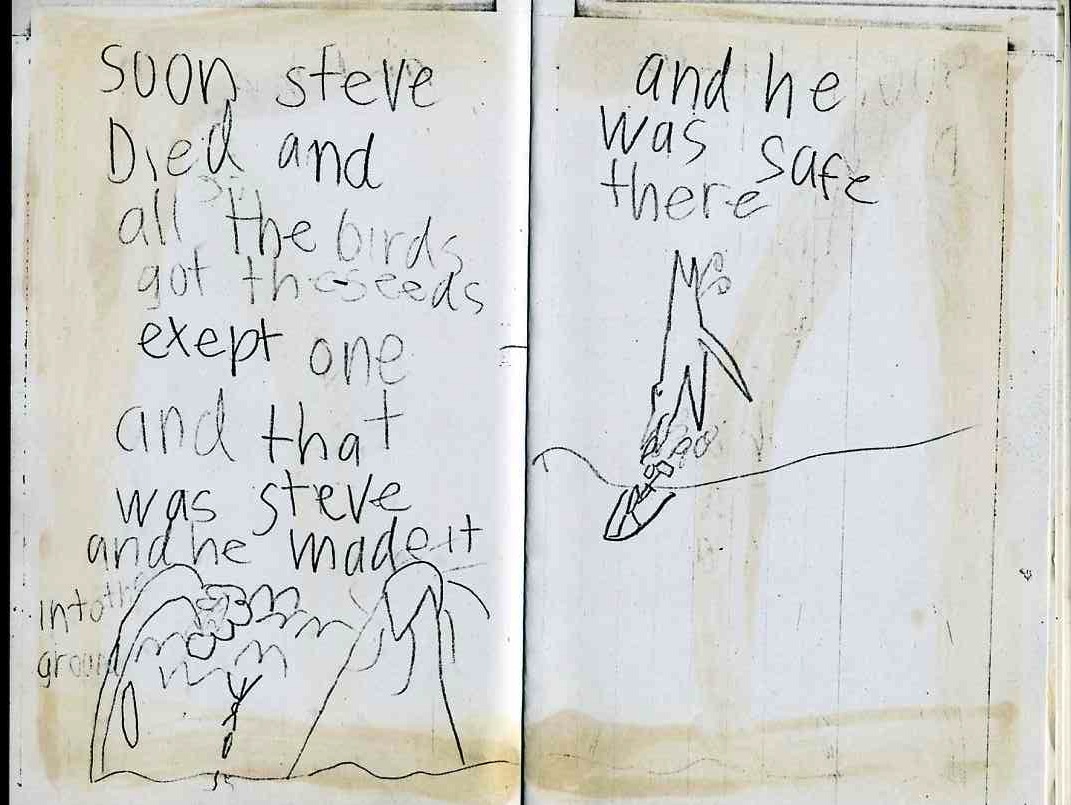 soon steve
Died and
all the birds
got the seeds
exept one
and that
was steve
and he made it
into the
ground
and he
was safe
there